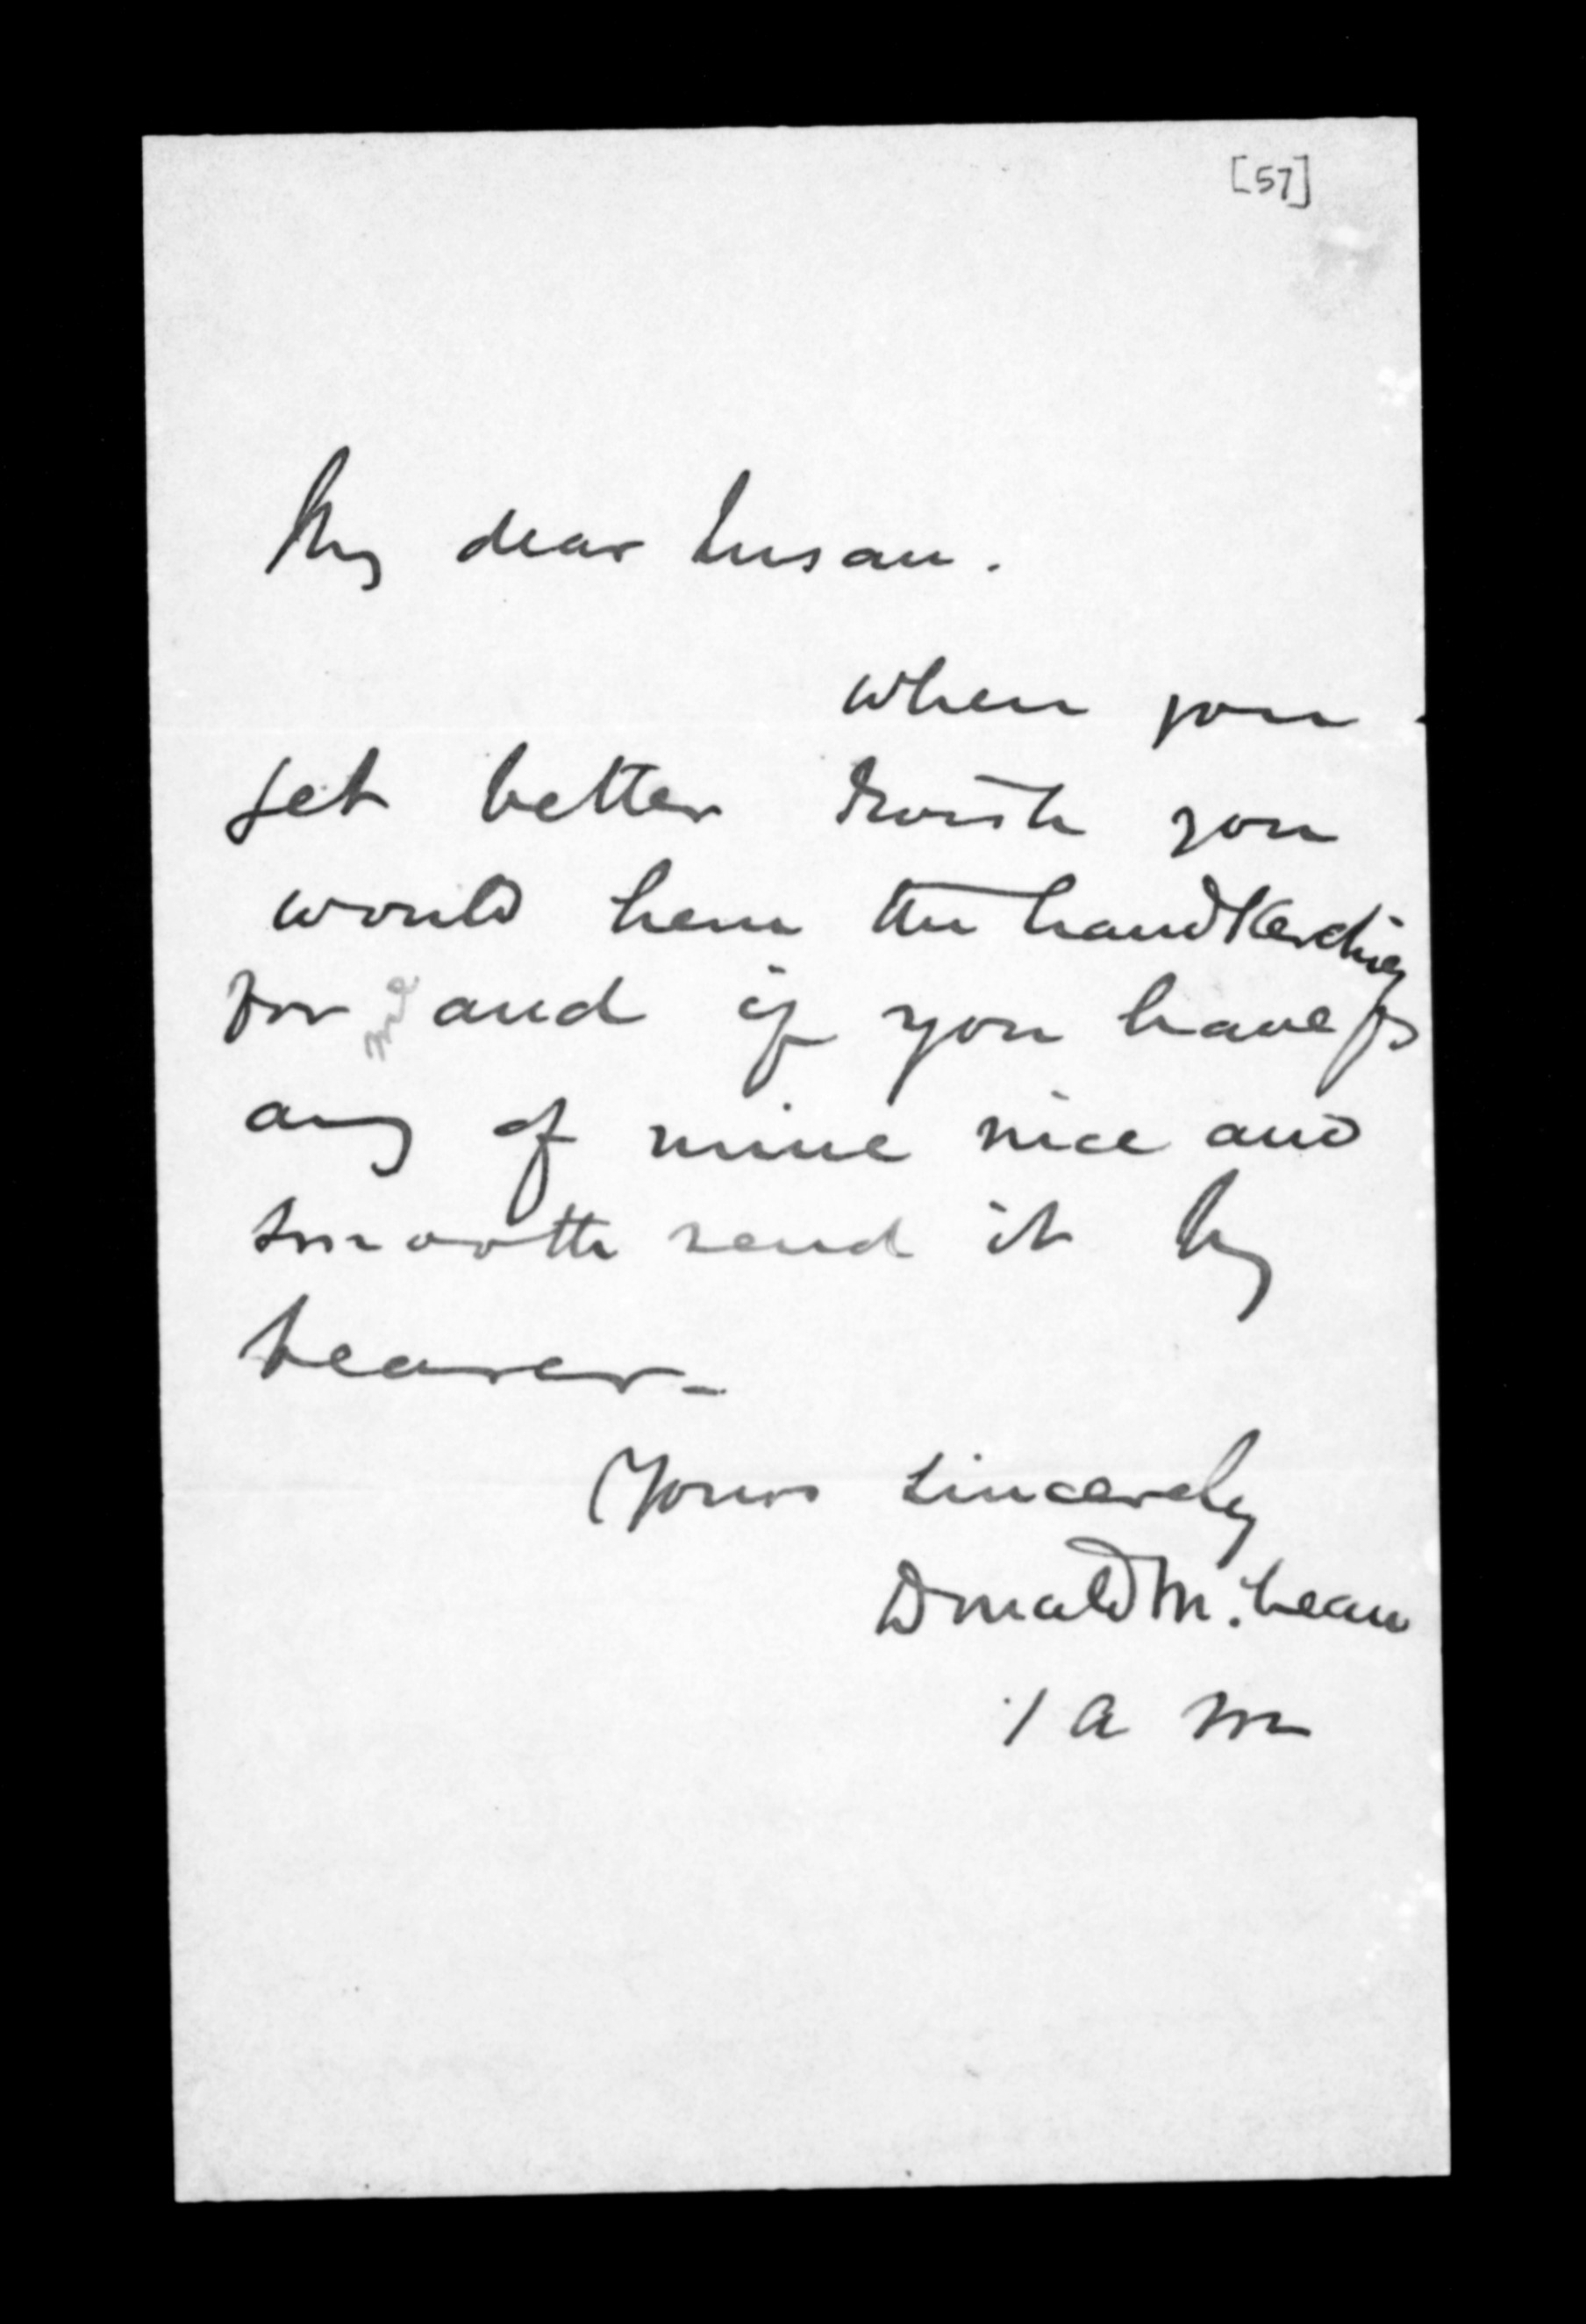 [57]
My dear Susan.
When you
get better I wish you
would hem the handkerchiefs
for me and if you have
any of mine nice and
smooth send it by
bearer_
Yours sincerely
Donald McLean
1 a m